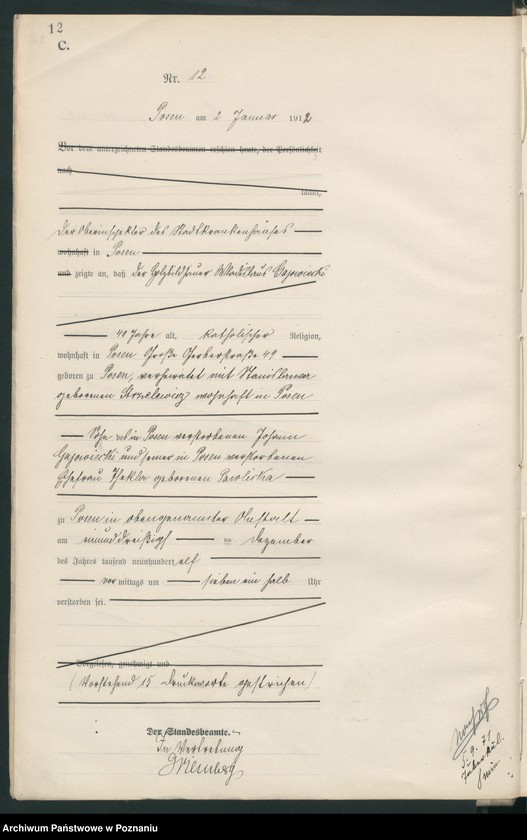 12
C.
Nr. 12
Posen am 2 Januar 1912
Vor dem unterzeichneten Standesbeamten erschien heute, der Persönlichkeit
nach
kannt,
Der Oberinspektor des Stadtkrankenhauses
wohnhaft in Posen
und zeigte an, daß der Holzbildhauer Wladislaus Gajowiecki
40 Jahre alt, katholischer Religion,
wohnhaft in Posen Große Gerberstraße 49
geboren zu Posen, verheiratet mit Stanislawa
geborenen Strzelewicz wohnhaft in Posen
Sohn des in Posen verstorbenen Johann
Gajowiecki und seiner in Posen verstorbenen
Ehefrau Thekla geborenen
zu Posen in obengenannter Anstalt
am einunddreißigsten Dezember
des Jahres tausend neunhundert elf
vormittags um sieben ein halb Uhr
verstorben sei.
Vorgelesen, genehmigt und
(Vorstehend 15 Druckworte gestrichen)
Der Standesbeamte.
In Vertretung
5. 9. 71
Archiwum Państwowe w Poznaniu